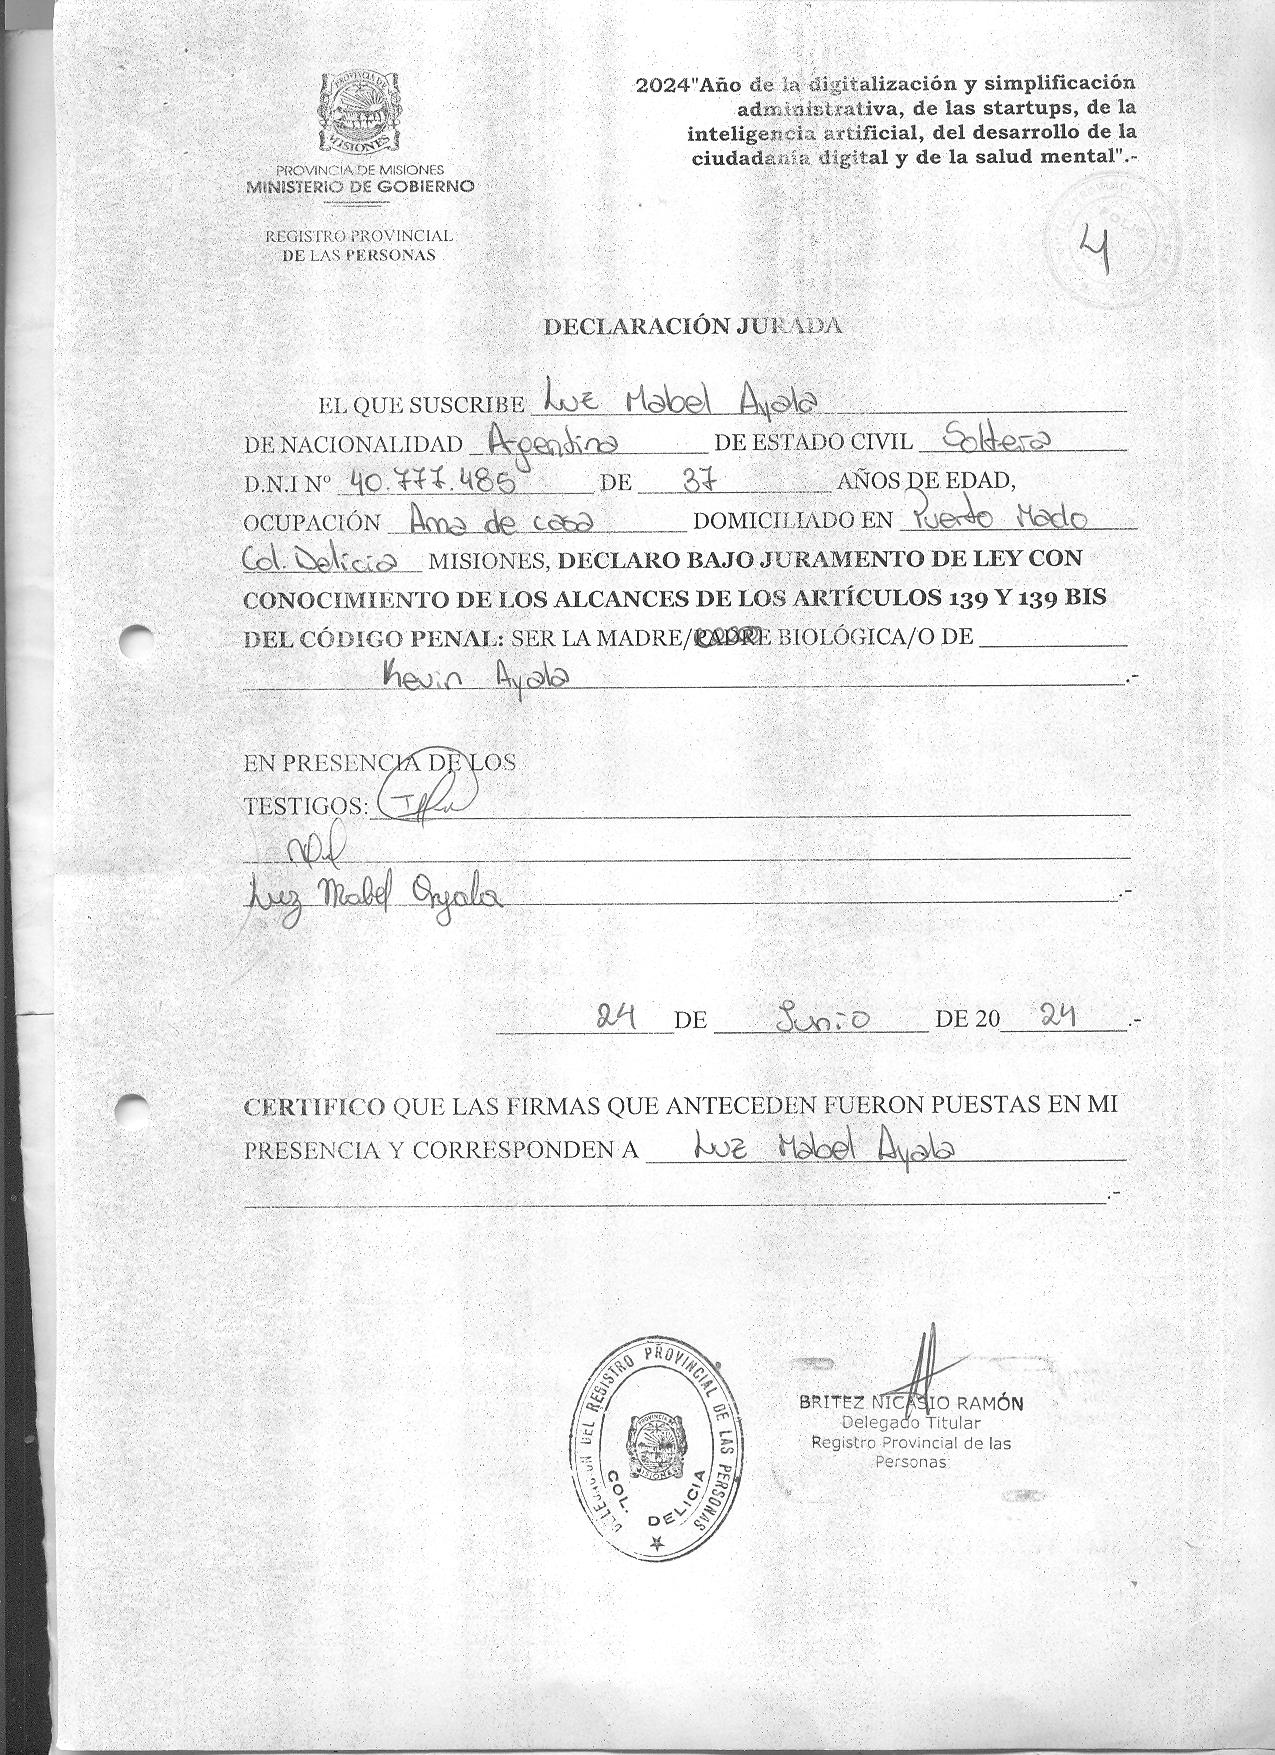 2024"Año de la digitalización y simplificación
administrativa, de las startups, de la
inteligencia artificial, del desarrollo de la
ciudadanía digital y de la salud mental".-
PROVINCIA DE MISIONES
MINISTERIO DE GOBIERNO
REGISTRO PROVINCIAL
DE LAS PERSONAS
4
DECLARACIÓN JURADA
EL QUE SUSCRIBE Luz Mabel Ayala
DE NACIONALIDAD Argentina DE ESTADO CIVIL Soltera
D.N.I Nº 40.777.485 DE 37 AÑOS DE EDAD,
OCUPACIÓN Ama de casa DOMICILIADO EN Puerto Mado
Col. Delicia MISIONES, DECLARO BAJO JURAMENTO DE LEY CON
CONOCIMIENTO DE LOS ALCANCES DE LOS ARTÍCULOS 139 Y 139 BIS
DEL CÓDIGO PENAL: SER LA MADRE/PADRE BIOLÓGICA/O DE
Kevin Ayala .-
EN PRESENCIA DE LOS
TESTIGOS:
Luz Mabel Ayala .-
24 DE Junio DE 2024.-
CERTIFICO QUE LAS FIRMAS QUE ANTECEDEN FUERON PUESTAS EN MI
PRESENCIA Y CORRESPONDEN A Luz Mabel Ayala
.-
DELEGACION DEL REGISTRO PROVINCIAL DE LAS PERSONAS
PROVINCIA DE
MISIONES
COL. DELICIA
BRITEZ NICASIO RAMÓN
Delegado Titular
Registro Provincial de las
Personas